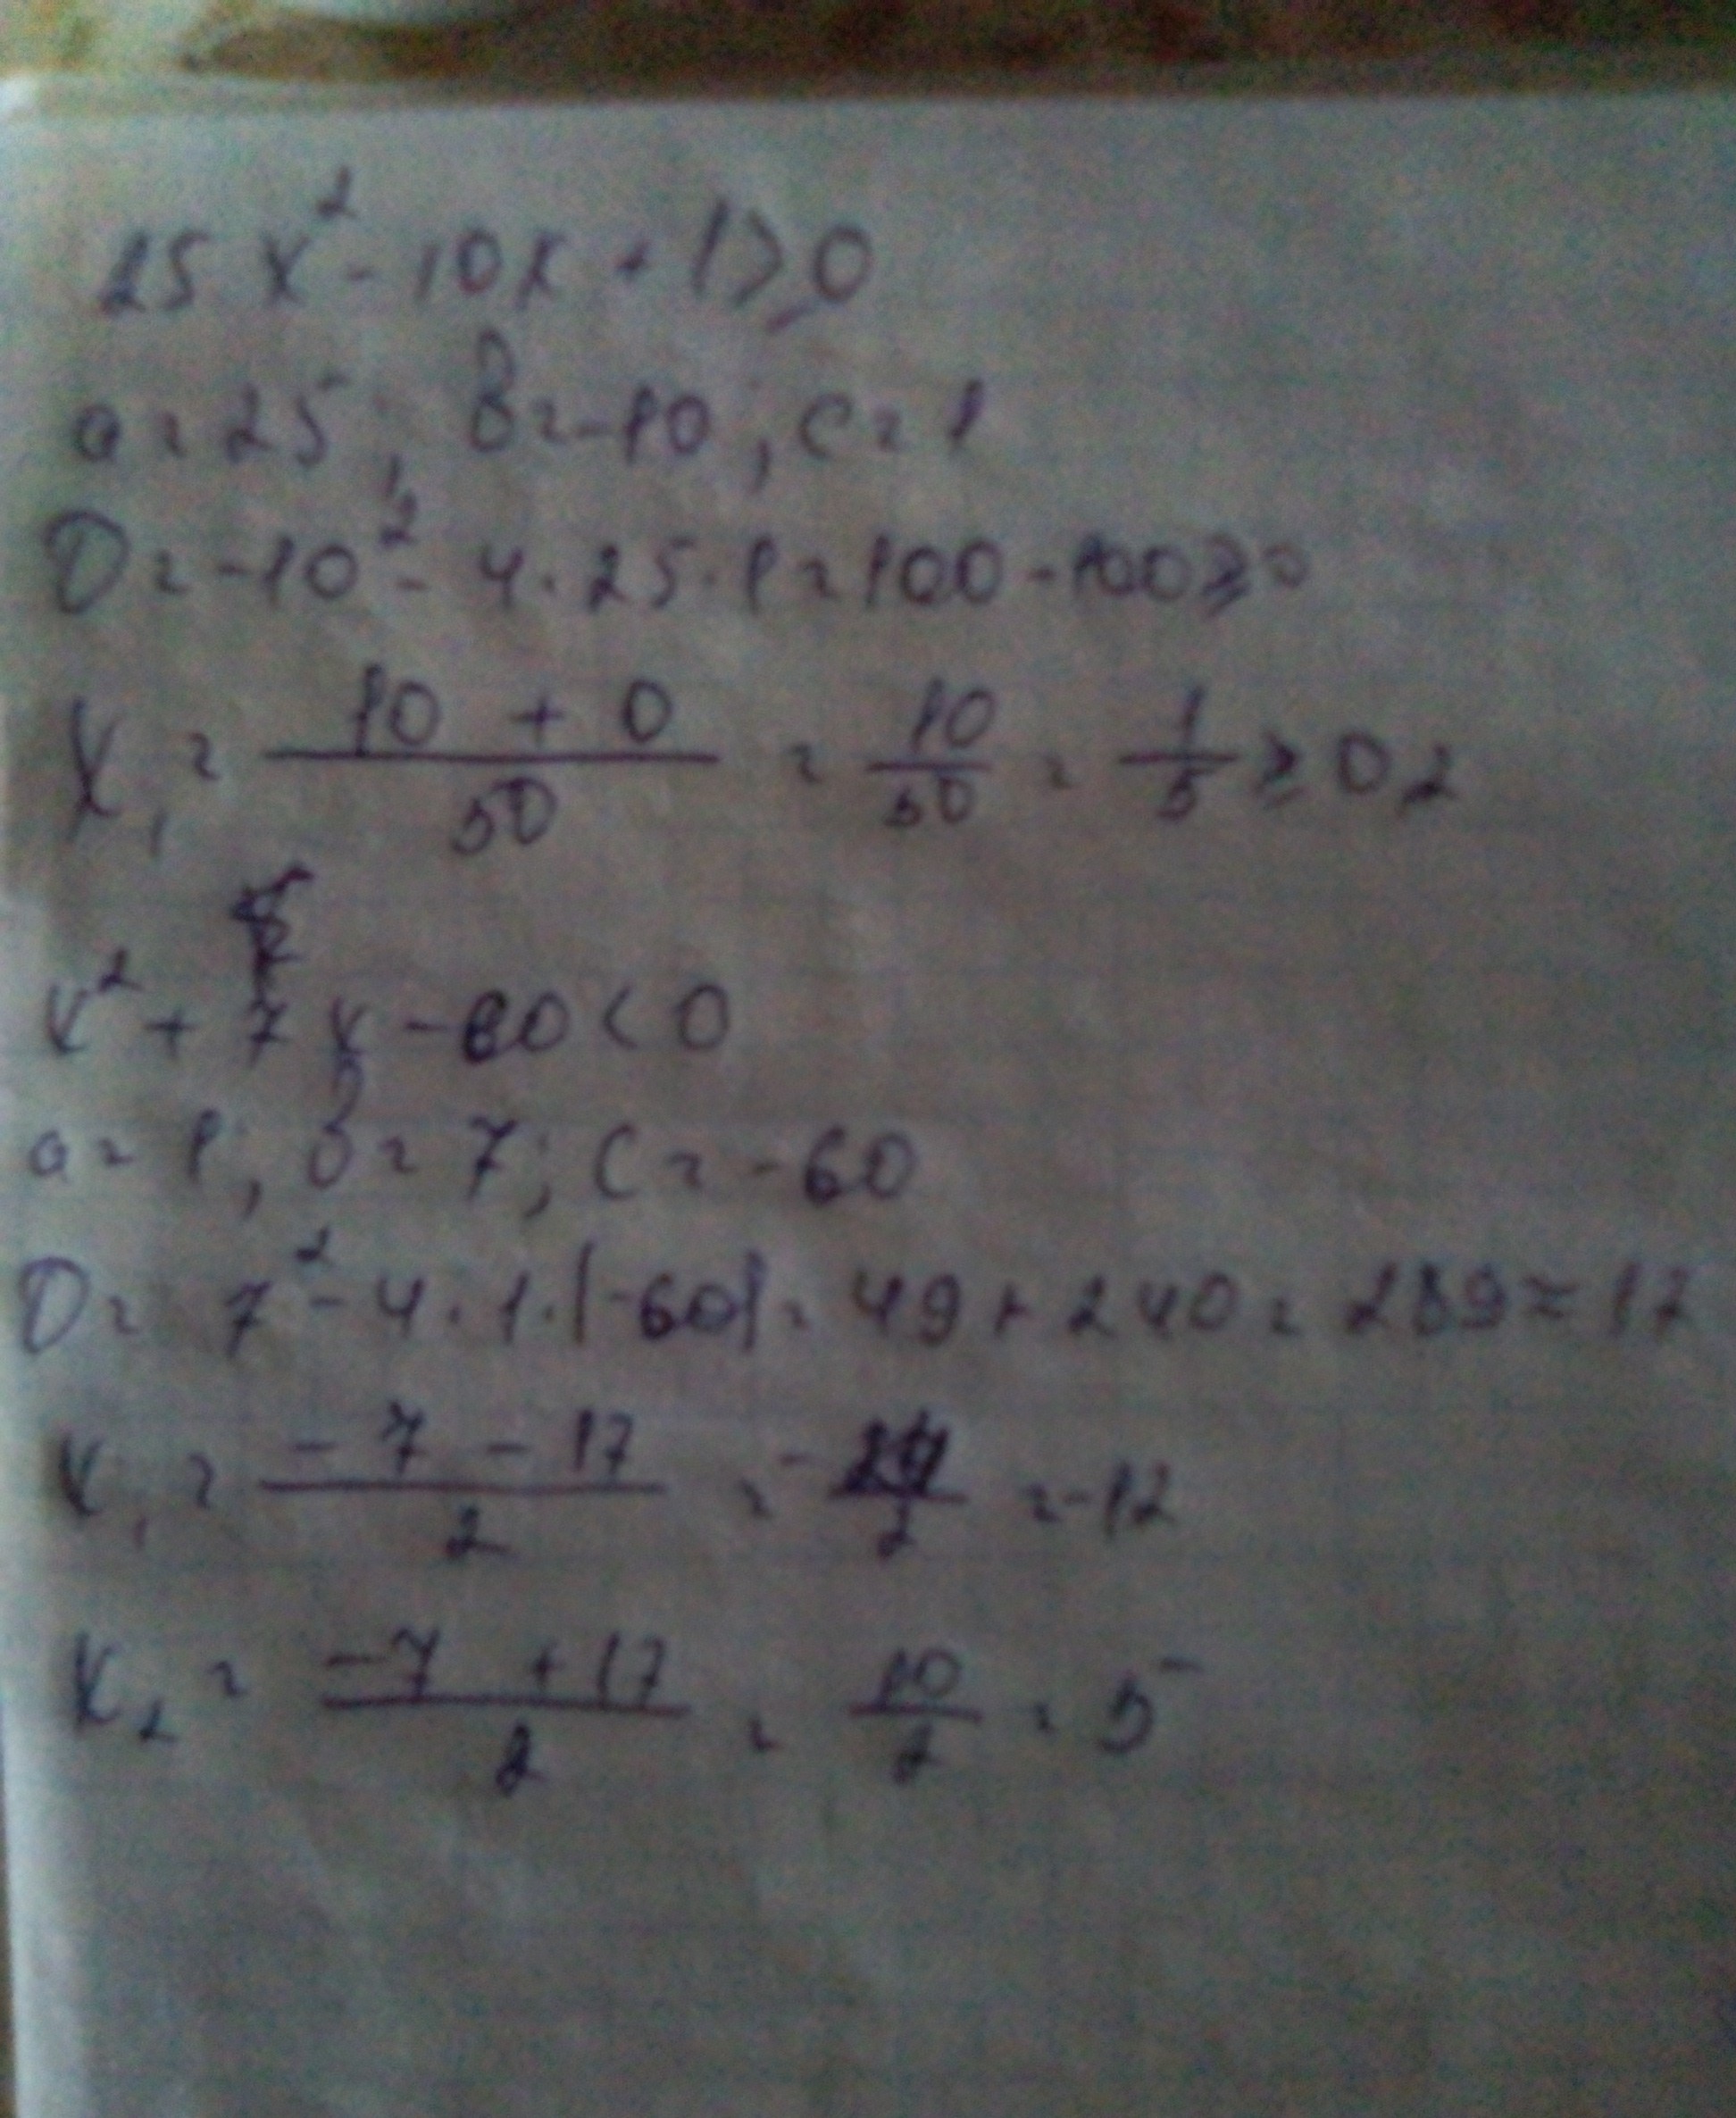 25x² - 10x + 1 ≥ 0
a = 25; b = -10; c = 1
D = -10² - 4 · 25 · 1 = 100 - 100 = 0
x₁ = (10 + 0)/50 = 10/50 = 1/5 = 0,2
x² + 7x - 60 < 0
a = 1; b = 7; c = -60
D = 7² - 4 · 1 · (-60) = 49 + 240 = 289 = 17
x₁ = (-7 - 17)/2 = -24/2 = -12
x₂ = (-7 + 17)/2 = 10/2 = 5